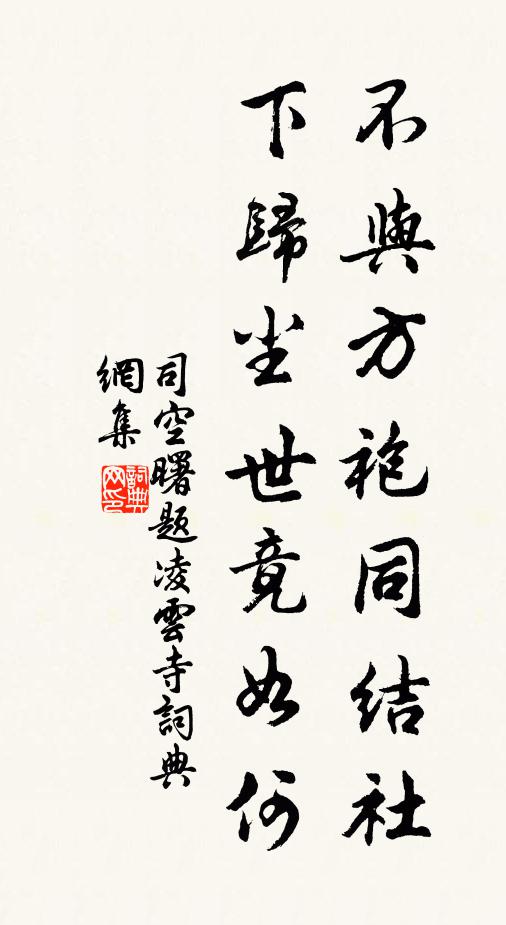 不與方袍同結社
下歸尘世竟如何
司空曙題凌雲寺詞典
網集
詞典
网印